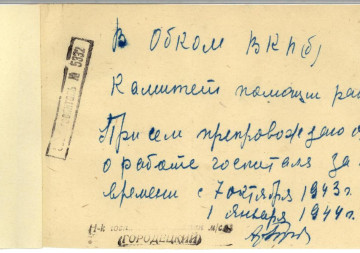 В Обком ВКП(б)
Комитет помощи
При сем препровождаю
о работе госпиталя за
времени с 7 октября 1943 г.
1 января 1944 г.
№ 5332
ГОРОДЕЦКИЙ